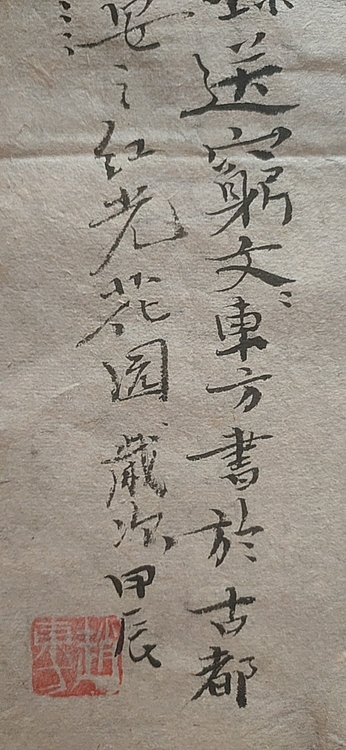 送窮文東方書於古都
之红光花園歲次甲辰